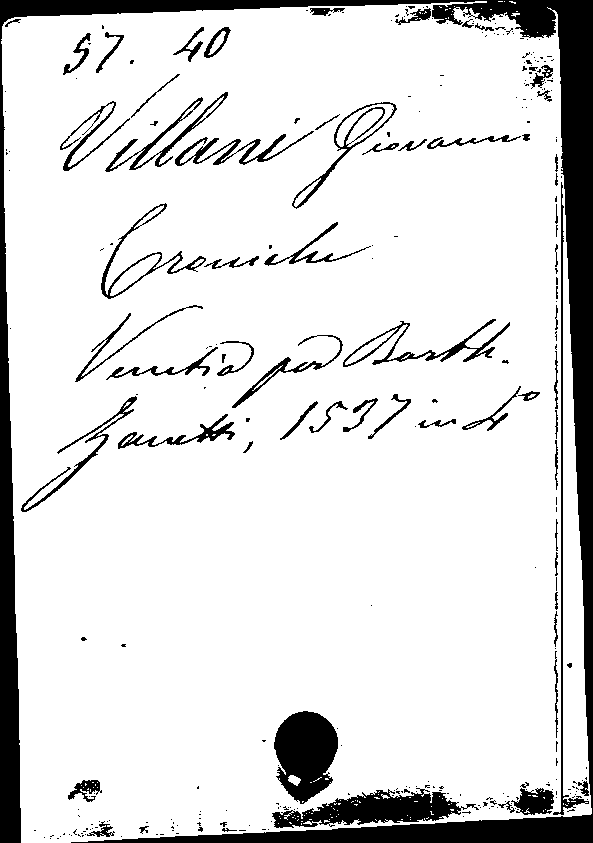 57. 40
Villani Giovanni
Croniche
Venetia per Barth.
Zanetti, 1537 in 4°